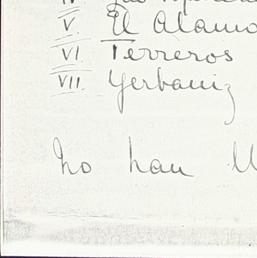 V. El Alamo
VI Terreros
VII Yerbaniz
no han